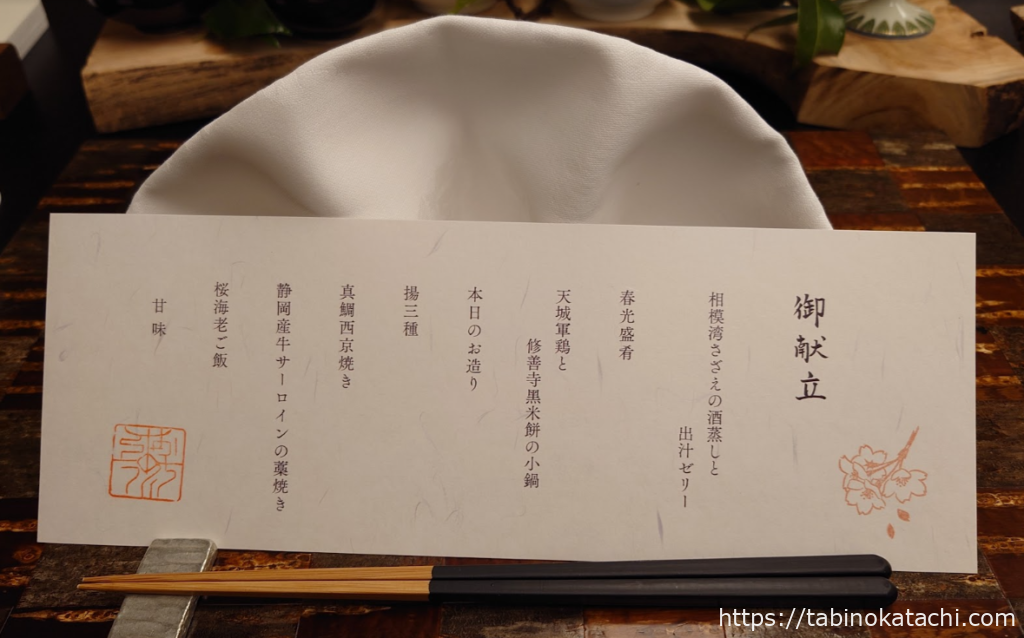 御献立
相模湾さざえの酒蒸しと
出汁ゼリー
春光盛肴
天城軍鶏と
修善寺黒米餅の小鍋
本日のお造り
揚三種
真鯛西京焼き
静岡産牛サーロインの藁焼き
桜海老ご飯
甘味
https://tabinokatachi.com